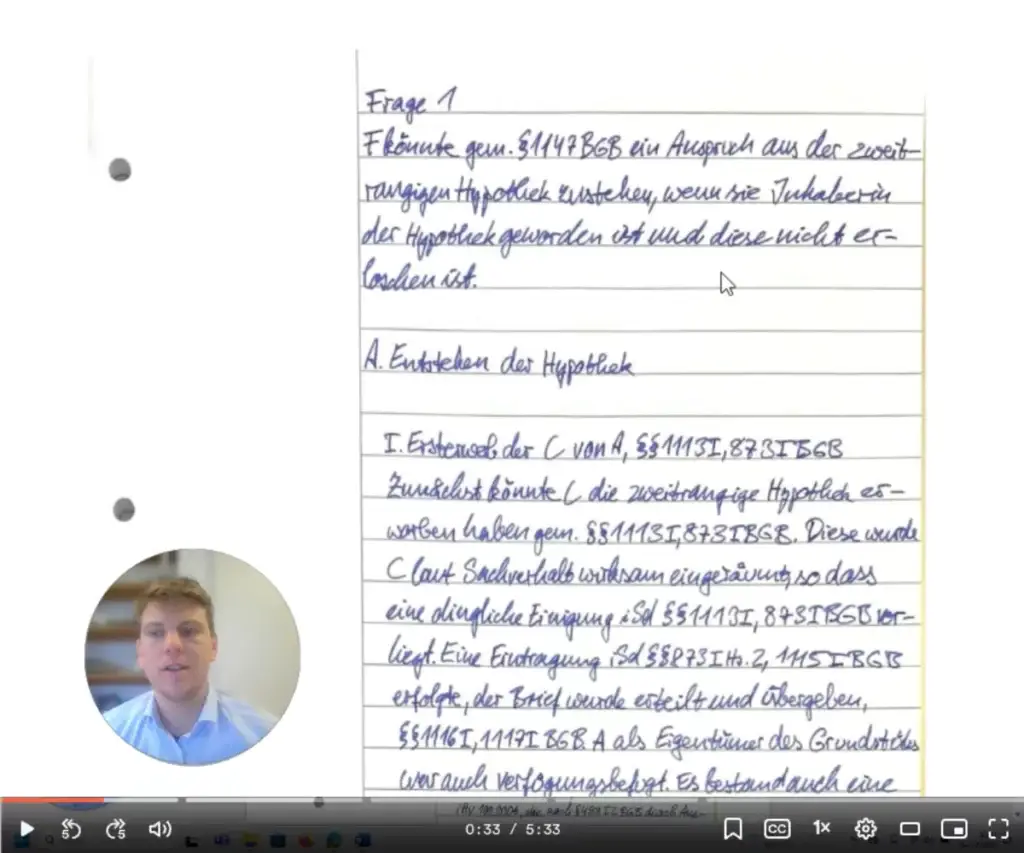 Frage 1
F könnte gem. §1147 BGB ein Anspruch aus der zweit-
rangigen Hypothek zustehen, wenn sie Inhaberin
der Hypothek geworden ist und diese nicht er-
loschen ist.
A. Entstehen der Hypothek
I. Ersterwerb der C von A, §§1113 I, 873 I BGB
Zunächst könnte C die zweitrangige Hypothek er-
worben haben gem. §§1113 I, 873 I BGB. Diese wurde
C laut Sachverhalt wirksam eingeräumt, so dass
eine dingliche Einigung iSd §§1113 I, 873 I BGB vor-
liegt. Eine Eintragung iSd §§873 I Hs. 2, 1115 I BGB
erfolgte, der Brief wurde erteilt und übergeben,
§§1116 I, 1117 I BGB. A als Eigentümer des Grundstücks
war auch verfügungsbefugt. Es bestand auch eine
0:33 / 5:33
CC
1x